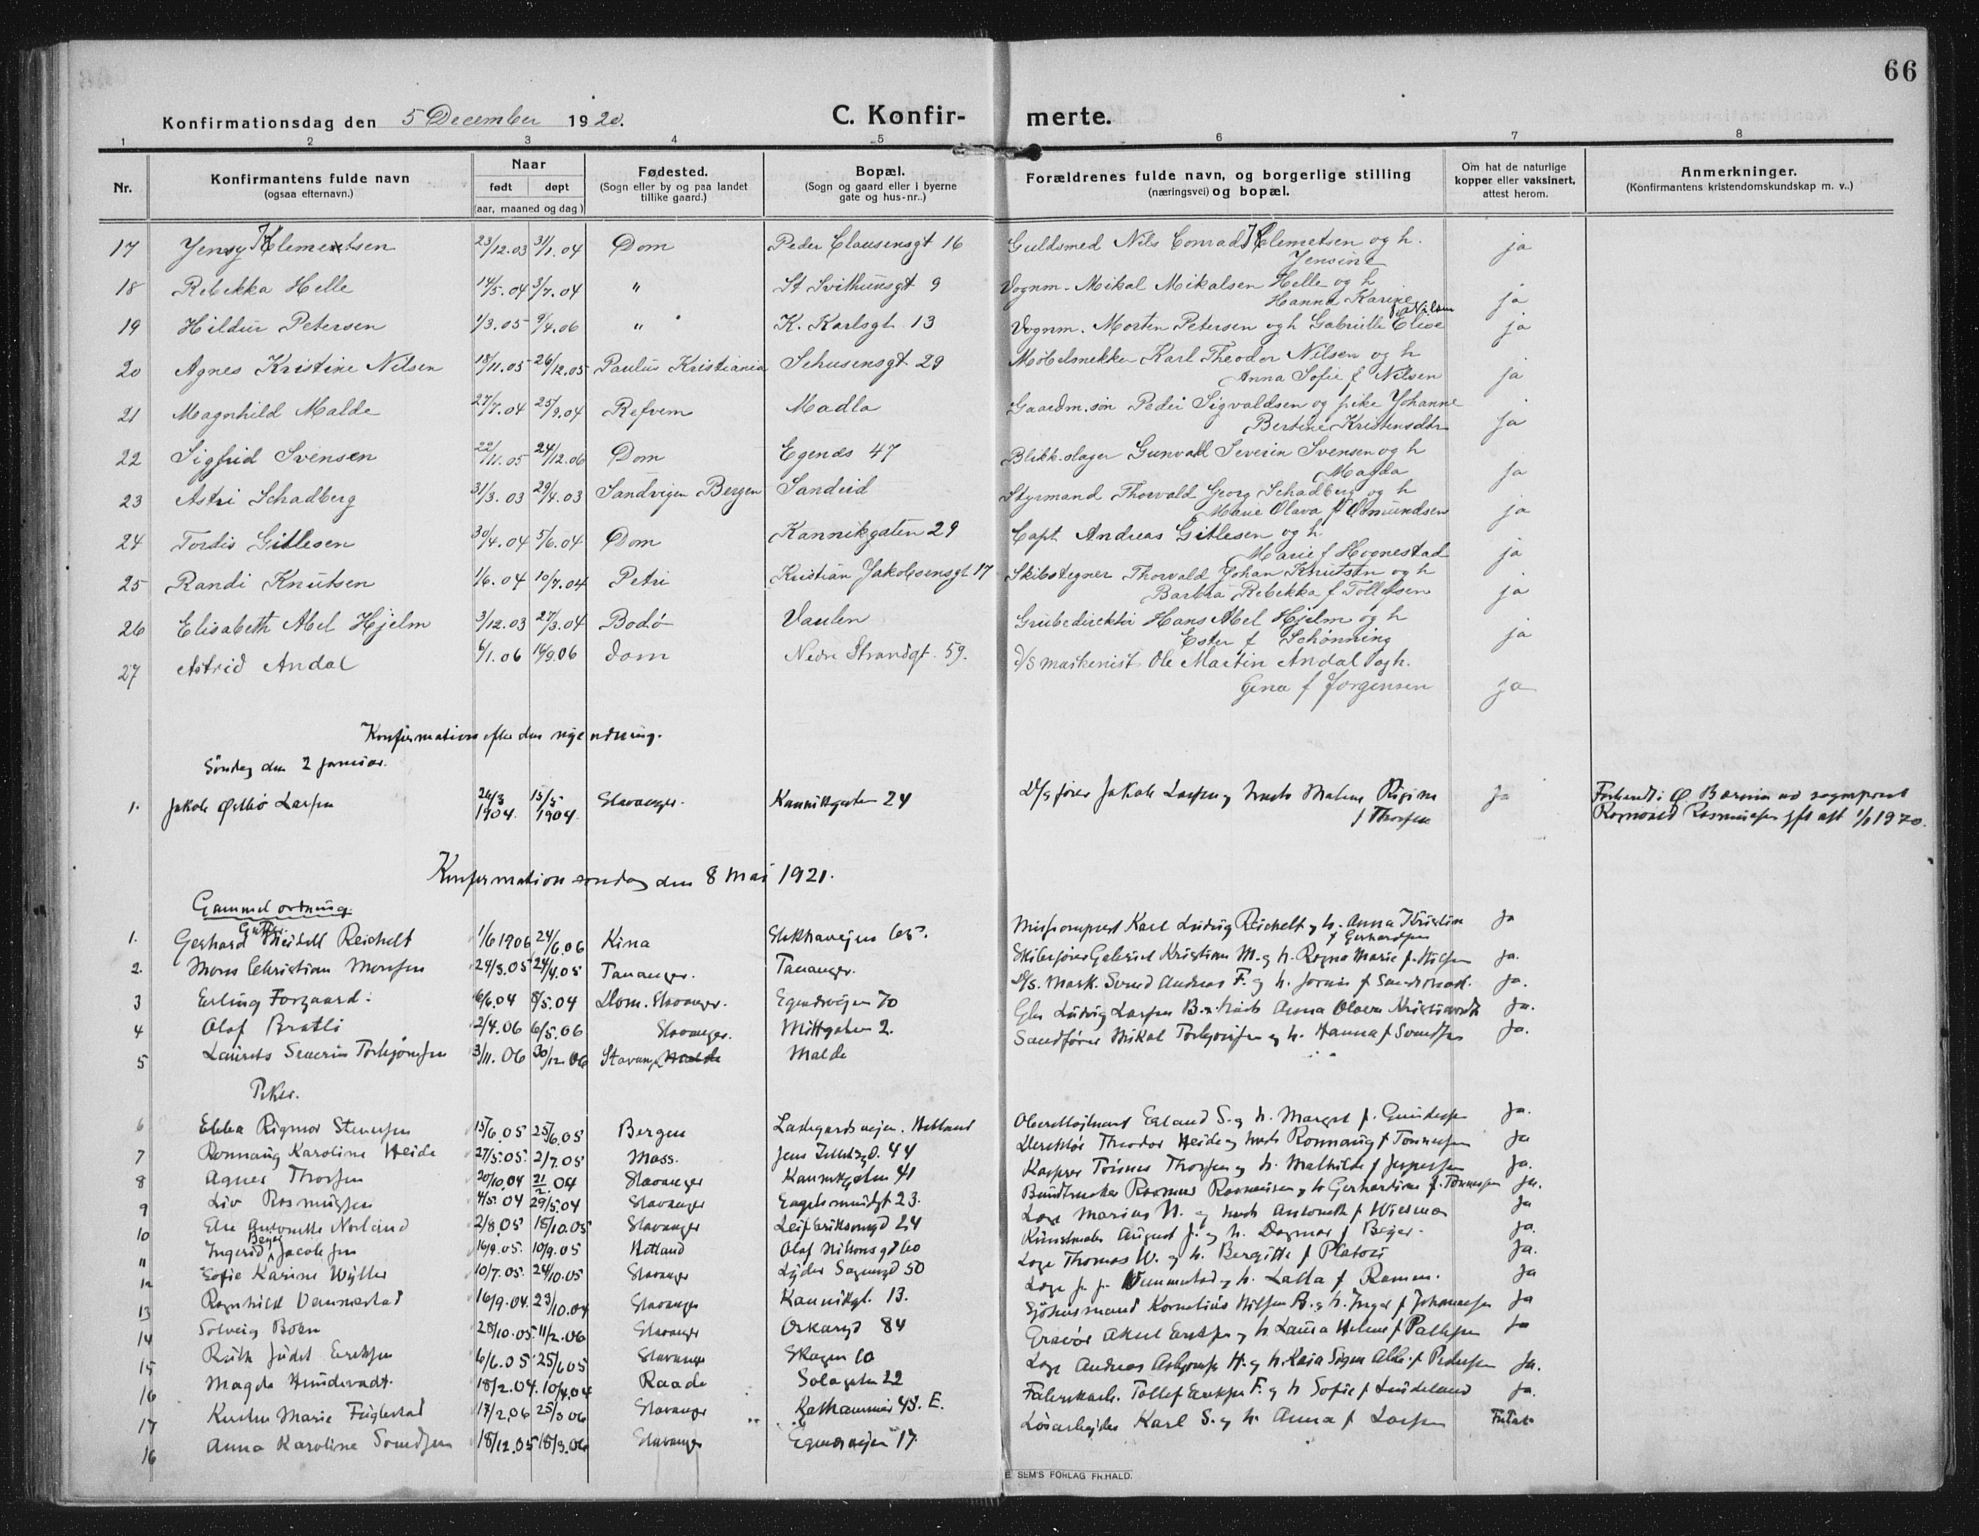 66
Konfirmationsdag den 5 December 1920.
C. Konfirmerte.
1 2 3 4 5 6 7 8
Nr. Konfirmantens fulde navn (ogsaa efternavn.) Naar født døpt (aar, maaned og dag) Fødested. (Sogn eller by og paa landet tillike gaard.) Bopæl. (Sogn og gaard eller i byerne gate og hus-nr..) Forældrenes fulde navn, og borgerlige stilling (næringsvei) og bopæl. Om hat de naturlige kopper eller vaksinert, attest herom. Anmerkninger. (Konfirmantens kristendomskundskap m. v..)
17 Jenny Klementsen 23/12.03 31/1.04 Dom Peder Clausensgt 16 Guldsmed Nils Conrad Klemetsen og h. ja
Jensine
18 Rebekka Helle 14/5.04 3/7.04 " St Svithunsgt 9 Vognm. Mikal Mikalsen Helle og h ja
Hanna Karine
19 Hildur Petersen 1/3.05 9/4.06 " K. Karlsgt. 13 Vognm. Morten Petersen og h Gabrielle Elise f. Nilsen ja
20 Agnes Kristine Nilsen 18/11.05 26/12.05 Paulus Kristiania Sehusensgt 29 Møbelsnekker Karl Theodor Nilsen og h
Anna Sofie f Nilsen ja
21 Magnhild Malde 27/7.04 25/9.04 Refvem Madla Gaardm.søn Peder Sigvaldsen og pike Johanne
Bertine Kristensdtr ja
22 Sigfrid Svensen 22/11.05 24/12.06 Dom Egenes 47 Blikkslager Gunvald Severin Svensen og h
Magda ja
23 Astri Schadberg 31/3.03 29/4.03 Sandvigen Bergen Sandeid Styrmand Thorvald Georg Schadberg og h
Marie Olava f Osmundsen ja
24 Tordis Gitlesen 30/4.04 5/6.04 Dom Kannikgaten 29 Capt. Andreas Gitlesen og h
Marie f Hognestad ja
25 Randi Knutsen 1/6.04 10/7.04 Petri Kristian Jakobsensgt 17 Skibstegner Thorvald Johan Knutsen og h
Barbra Rebekka f Tollefsen ja
26 Elisabeth Abel Hjelm 3/12.03 27/3.04 Bodø Vaulen Grubedirektør Hans Abel Hjelm og h
Ester f Schønning ja
27 Astrid Andal 6/1.06 16/9.06 Dom Nedre Strandgt. 59. D/S maskenist Ole Martin Andal og h.
Gina f Jørgensen ja
Konfirmation efter den nye ordning.
Søndag den 2 januar.
1. Jakob Østbø Larsen 24/3 1904. 15/5 1904. Stavanger. Kannikgaten 24 D/S fører Jakob Larsen og hust. Malene Regine ja
f Thorsen
Konfirmation søndag den 8 mai 1921.
Gammel ordning
Gutter.
1. Gerhard Meidell Reichelt 1/6 1906 24/6.06 Kina Stokkaveien 65. Missionsprest Karl Ludvig Reichelt og h. Anna Kristine ja
f Gerhardsen
2. Mons Christian Monsen 24/3.05 24/4.05 Tananger. Tananger. Skibsfører Gabriel Kristian M. og h. Ragna Marie f. Nilsen ja.
3 Erling Forgaard. 6/6.04 8/5.04 Dom. Stavanger. Egenesveien 70 D/S. mask. Svend Andreas F. og h. ja.
4 Olaf Bratli 2/4.06 6/5.06 Stavanger. Midtgaten 2. Ludvig Larsen B. og hust. Anna Olava ja.
5 Laurits Severin Torbjørnsen 3/11.06 30/12.06 Stavanger Malde Malde Sandfører Mikal Torbjørnsen og h. Hanna f Svendsen ja.
Piker.
6 Ebba Rigmor Stenersen 15/6.05 25/6.05 Bergen Ladegaardsveien. Hetland Oberstløitnant Erland S. og h. Margit f. ja.
7 Rønnaug Karoline Heide 27/5.05. 2/7.05 Moss. 44 Direktør Theodor Heide og hust. Rønnaug f Tønnesen ja
8 Agnes Thorsen 20/10.04 21/2.04 Stavanger Kannikgaten 41 Kasserer Tønnes Thorsen og h. Mathilde f Jespersen ja.
9 Liv Rasmussen 4/5.04 29/5.04 Stavanger Engelsmindegt 23. Bundtmaker Rasmus Rasmussen og h Gerhardine f. Tønnesen ja.
10 Else Antonette Norland 2/8.05 15/10.05 Stavanger Leif Erikssønsgt 24 Læge Marius N. og hust. Antonette f Wiesman ja
11 Ingerid Beyer Jacobsen 16/9.05. 10/9.05 Hetland Olaf Nilsens gt 60 Kunstmaler August J. og h. Dagmar f Beyer. ja.
12 Sofie Karine Wyller 10/7.05. 24/10.05 Stavanger Lyder Sagensgt 50 Læge Thomas W. og h. Bergitte f Platou ja.
13 Ragnhild Vennerstad 16/9.04. 23/10.04 Stavanger Kannikgt. 13. Læge J. J. Vennerstad og h. Lalla f Ramm. ja
14 Solveig Boen 28/10.05. 11/2.06 Stavanger Oskarsgt 84 Sjøhusmand Kornelius Nilsen B. og h. Inger f Johannesen ja
15 Ruth Judit Eriksen 6/6.05 25/6.05 Stavanger Skagen 10 Gravør Aksel Eriksen og h. Laura Helene f Pallesen ja
16 Magda Hundvadt. 18/2.04. 10/4.04 Raade Solagaten 22 Læge Andreas H. og h. Kaia f. Pedersen ja.
17 Kirsten Marie Fuglestad 17/2.06 25/3.06 Stavanger Rathammer 43. E. Tollef Eriksen F. og h Sofie f Lindeland ja.
16 Anna Karoline Svendsen 18/12.05 18/3.06 Stavanger Egenesveien 17. Løsarbeider Karl S. og h. Anna f Larsen
E SEM'S FORLAG FR.HALD.